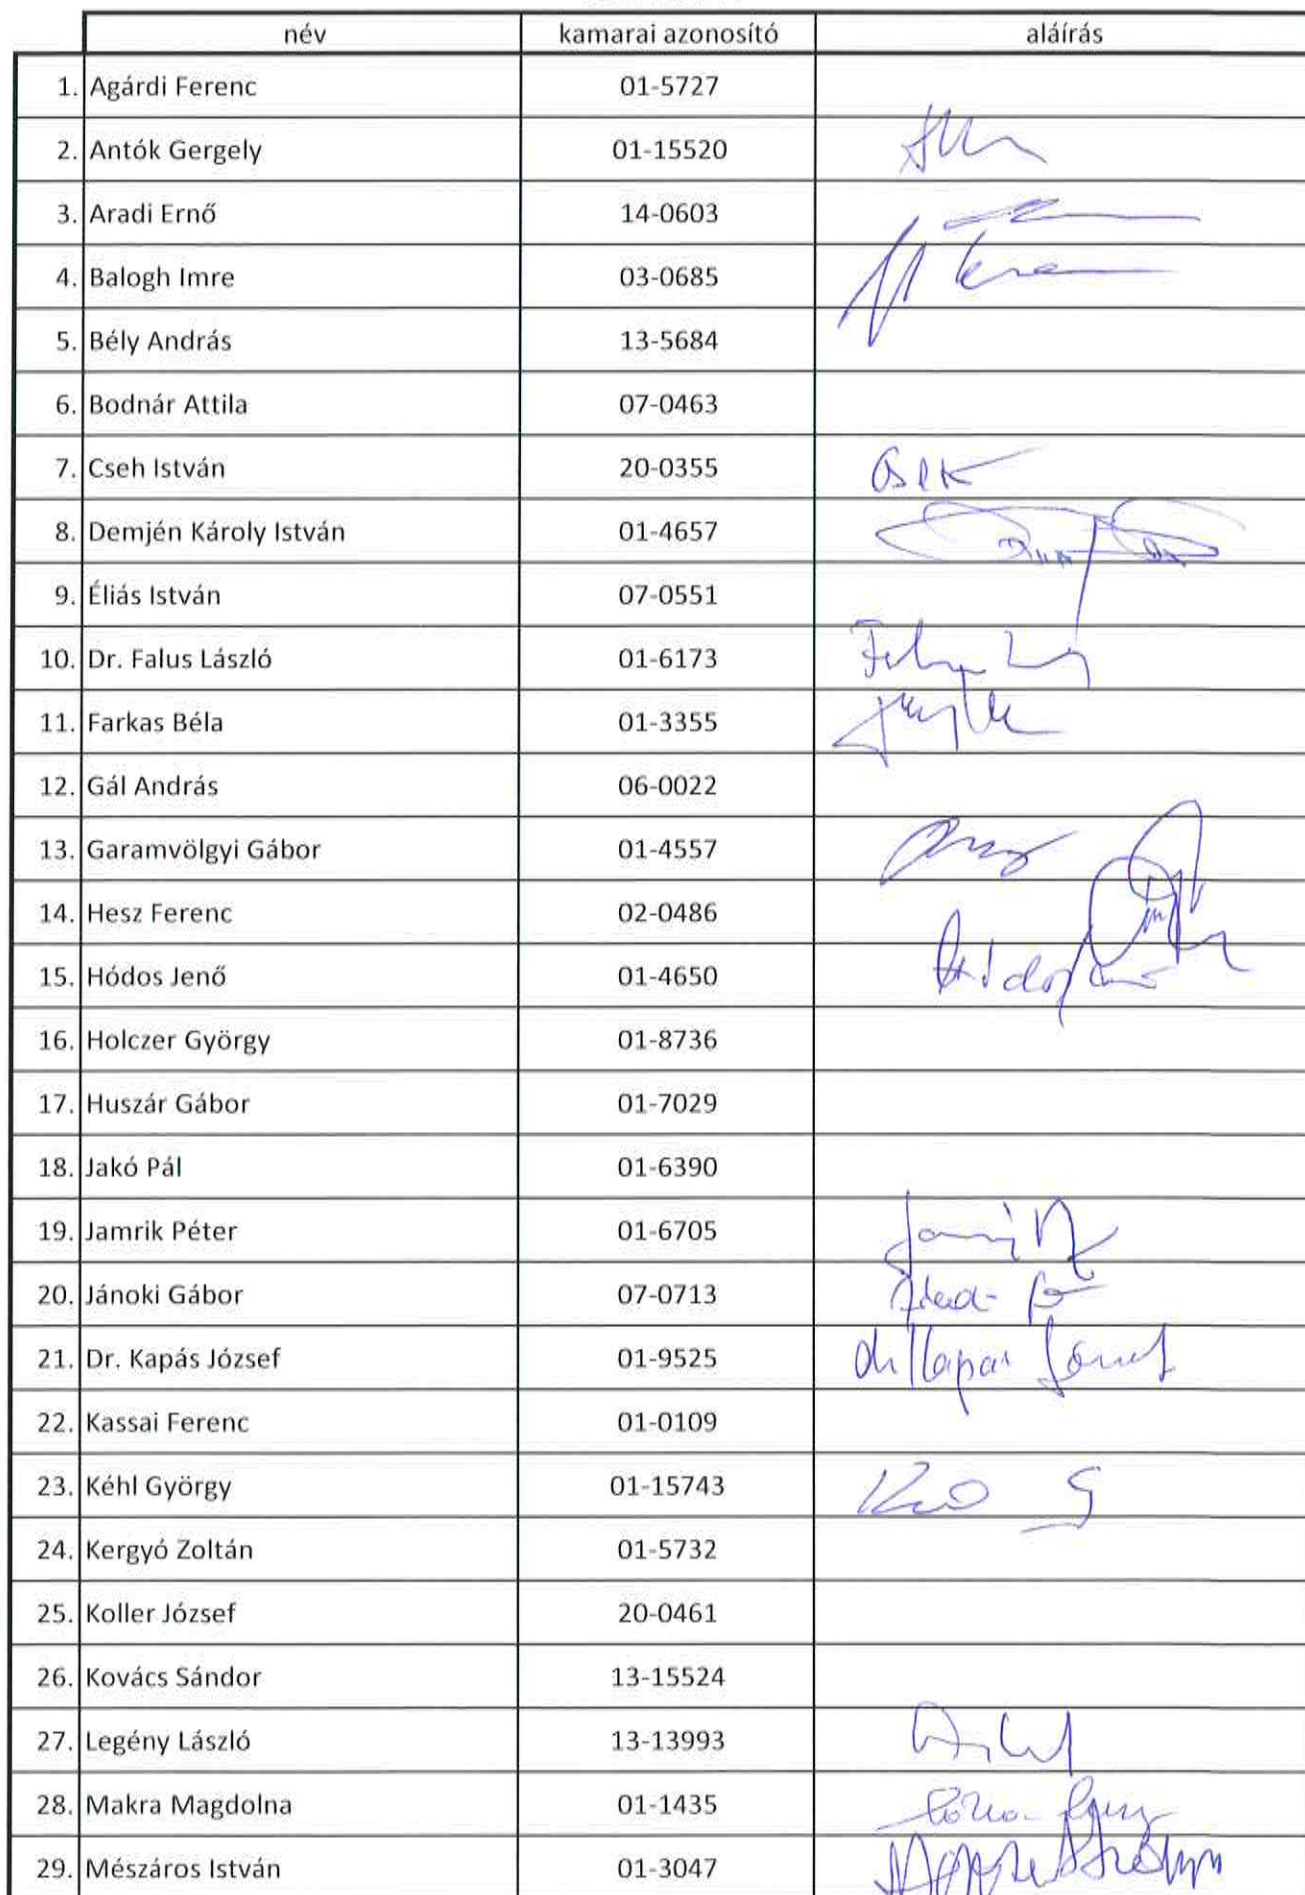 név kamarai azonosító aláírás
1. Agárdi Ferenc 01-5727
2. Antók Gergely 01-15520
3. Aradi Ernő 14-0603
4. Balogh Imre 03-0685
5. Bély András 13-5684
6. Bodnár Attila 07-0463
7. Cseh István 20-0355
8. Demjén Károly István 01-4657
9. Éliás István 07-0551
10. Dr. Falus László 01-6173
11. Farkas Béla 01-3355
12. Gál András 06-0022
13. Garamvölgyi Gábor 01-4557
14. Hesz Ferenc 02-0486
15. Hódos Jenő 01-4650
16. Holczer György 01-8736
17. Huszár Gábor 01-7029
18. Jakó Pál 01-6390
19. Jamrik Péter 01-6705
20. Jánoki Gábor 07-0713
21. Dr. Kapás József 01-9525
22. Kassai Ferenc 01-0109
23. Kéhl György 01-15743
24. Kergyó Zoltán 01-5732
25. Koller József 20-0461
26. Kovács Sándor 13-15524
27. Legény László 13-13993
28. Makra Magdolna 01-1435
29. Mészáros István 01-3047